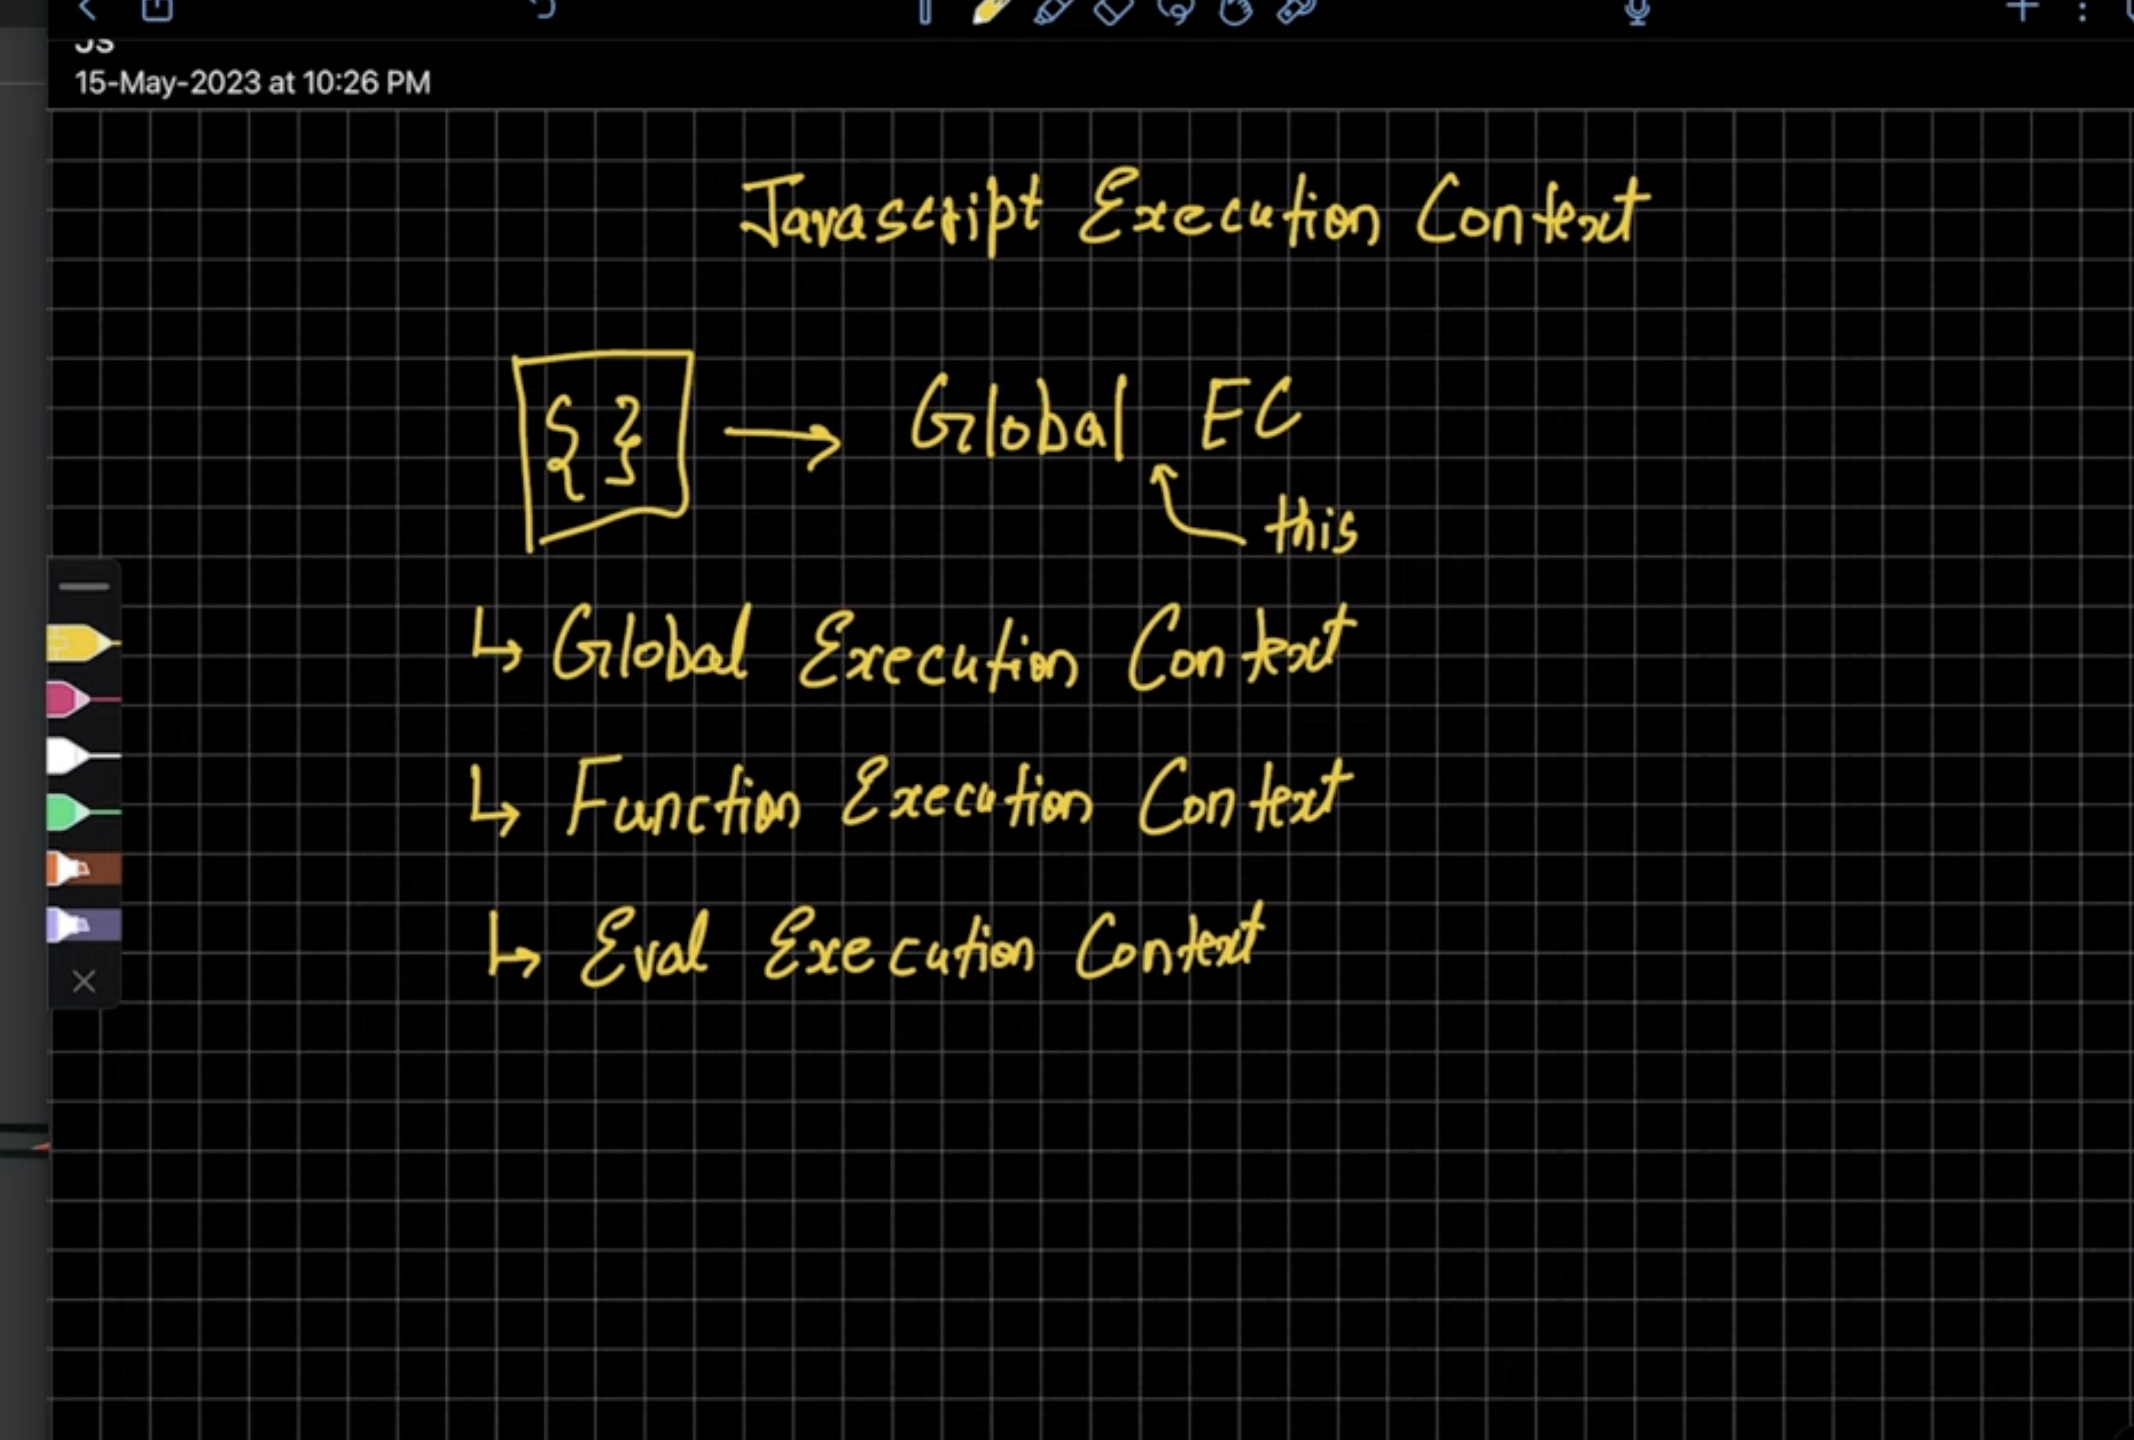 JS
15-May-2023 at 10:26 PM
Javascript Execution Context
{ } → Global EC
this
↳ Global Execution Context
↳ Function Execution Context
↳ Eval Execution Context